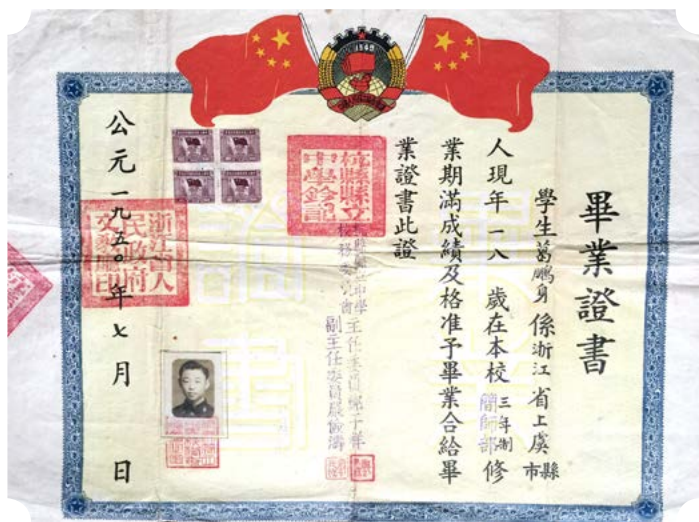 1949
畢業證書
學生葛鵬身係浙江省上虞縣市
人現年一八歲在本校三年制簡師部修
業期滿成績及格准予畢業合給畢
業證書此證
杭縣縣立中學鈐記
校務委員會
主任委員
副主任委員
浙江省人民政府文教廳印
公元一九五〇年七月 日
畢業證書